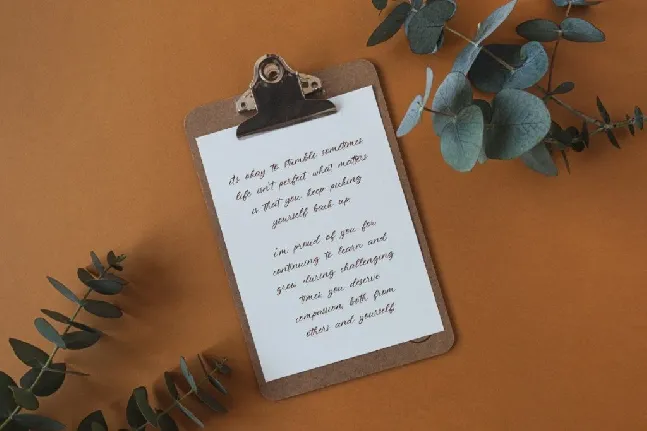 its okay to stumble sometimes
life isn't perfect what matters
is that you keep picking
yourself back up
i'm proud of you for
continuing to learn and
grow during challenging
times you deserve
compassion, both from
others and yourself